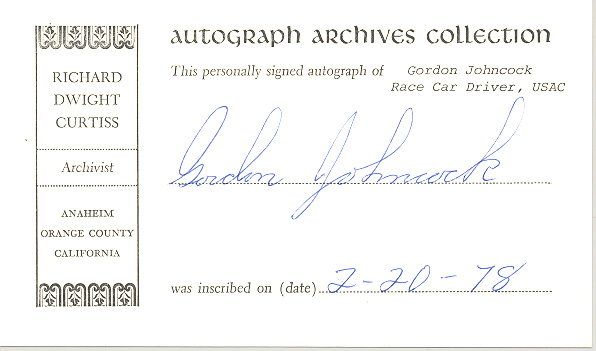 RICHARD
DWIGHT
CURTISS
Archivist
ANAHEIM
ORANGE COUNTY
CALIFORNIA
autograph archives collection
This personally signed autograph of Gordon Johncock
Race Car Driver, USAC
Gordon Johncock
was inscribed on (date) 2-20-78